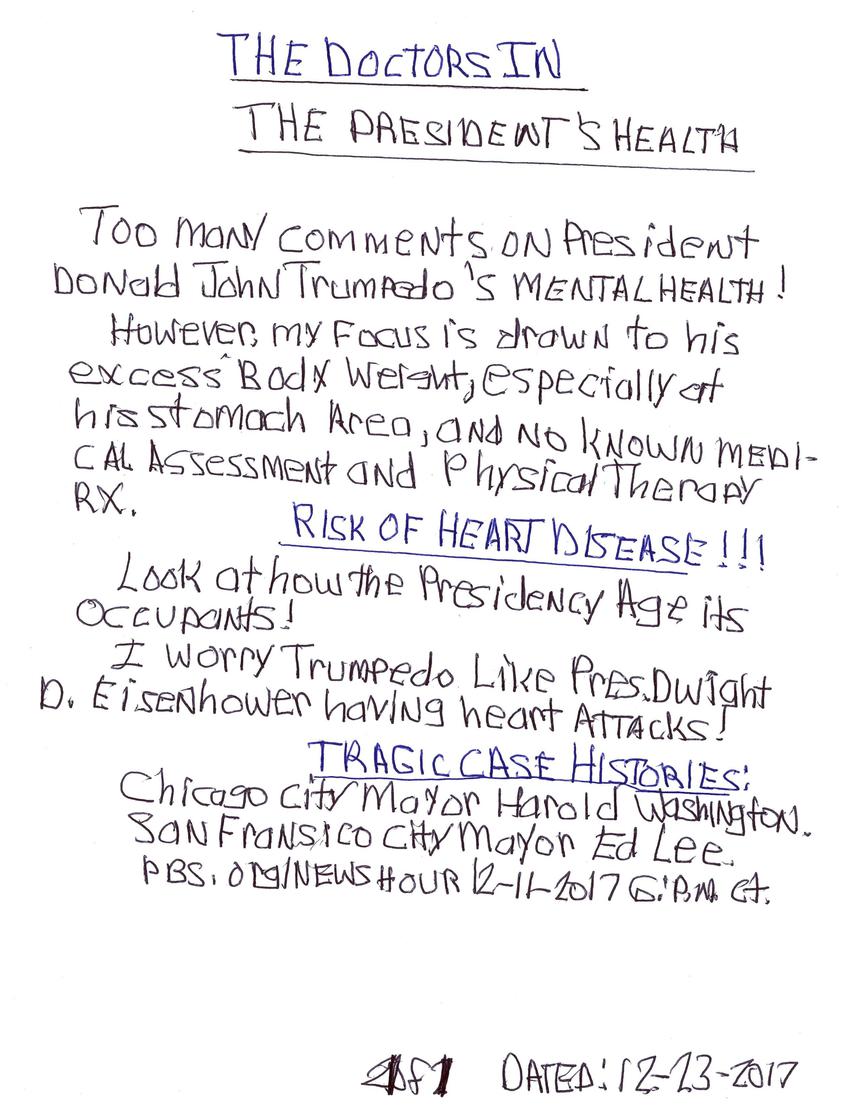 THE DOCTORS IN
THE PRESIDENT'S HEALTH
Too many comments on President
Donald John Trumpedo's MENTAL HEALTH!
However, my Focus is drawn to his
excess Body Weight, especially at
his stomach Area, and no known MEDI-
CAL Assessment and Physical Therapy
RX.
RISK OF HEART DISEASE!!!
Look at how the Presidency Age its
Occupants!
I worry Trumpedo Like Pres. Dwight
D. Eisenhower having heart ATTACKS!
TRAGIC CASE HISTORIES:
Chicago City Mayor Harold Washington.
San Fransico City Mayor Ed Lee.
PBS.ORG/NEWSHOUR 12-11-2017 6:P.M. CT.
of 1 DATED: 12-23-2017